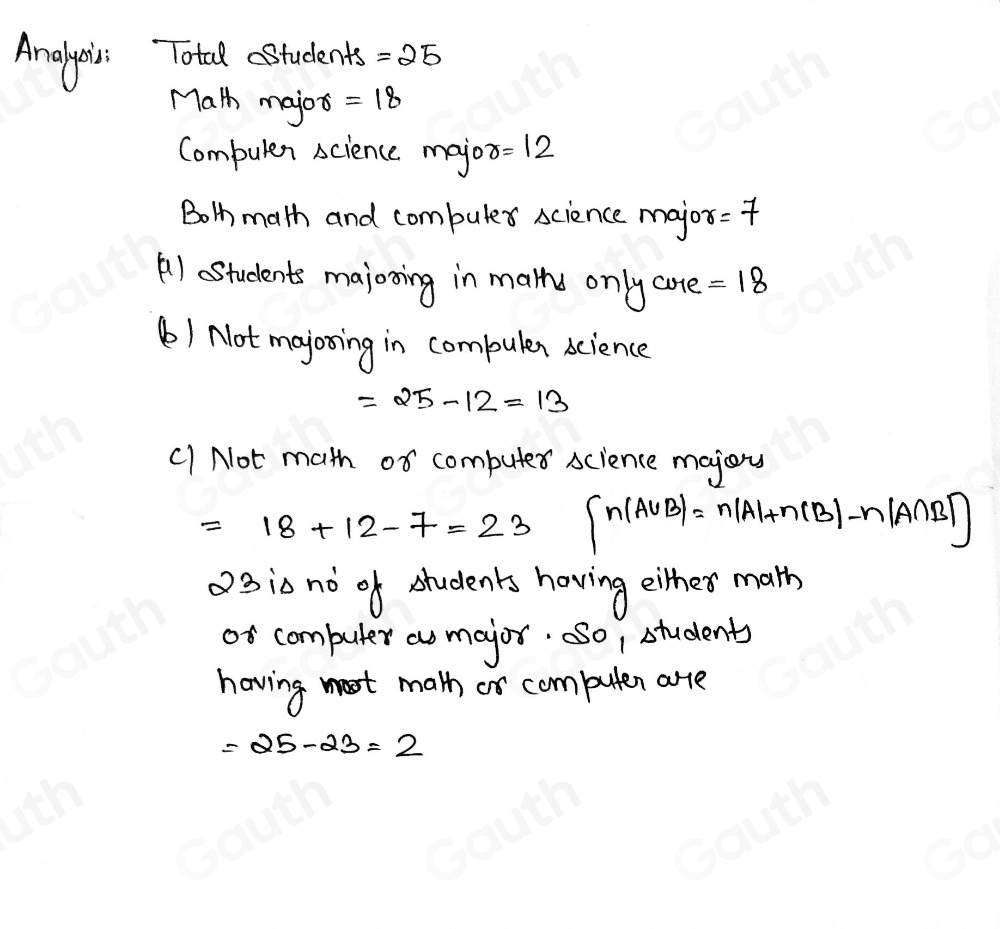 Analysis: Total Students = 25
Math major = 18
Computer science major = 12
Both math and computer science major = 7
(a) Students majoring in maths only are = 18
(b) Not majoring in computer science
= 25 - 12 = 13
c) Not math or computer science majors
= 18 + 12 - 7 = 23 [n(A∪B) = n(A)+n(B)-n(A∩B)]
23 is no of students having either math
or computer as major. So, students
having not math or computer are
= 25 - 23 = 2
Gauth